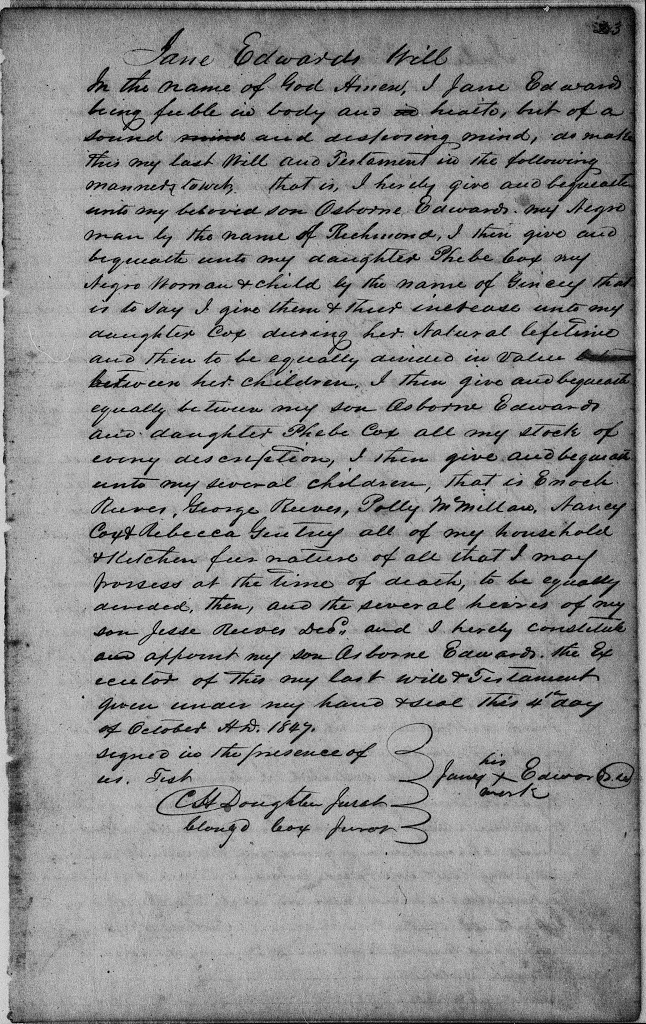 23
Jane Edwards Will
In the name of God Amen, I Jane Edwards
being feeble in body and in health, but of a
sound mind and disposing mind, do make
this my last Will and Testament in the following
manner, towit, that is, I hereby give and bequeath
unto my beloved son Osborne Edwards. my Negro
man by the name of Richmond, I then give and
bequeath unto my daughter Phebe Cox my
Negro Woman & child by the name of Gincey that
is to say I give them & their increase unto my
daughter Cox during her Natural lifetime
and then to be equally divided in value
between her children, I then give and bequeath
equally between my son Osborne Edwards
and daughter Phebe Cox all my stock of
every discreption, I then give and bequeath
unto my several children, that is Enoch
Reeves, George Reeves, Polly McMillan, Nancy
Cox & Rebecca Gentry all of my household
& Kitchen furnature of all that I may
possess at the time of death, to be equally
divided, then, and the several heires of my
son Jesse Reeves Decd, and I hereby constitute
and appoint my son Osborne Edwards. the Ex
ecutor of this my last will & Testament
given under my hand & seal this 4th day
of October A.D. 1847.
signed in the presence of
us. Test
his
Janey X Edwards
mark
C H Doughten Jurat
Cox Juror